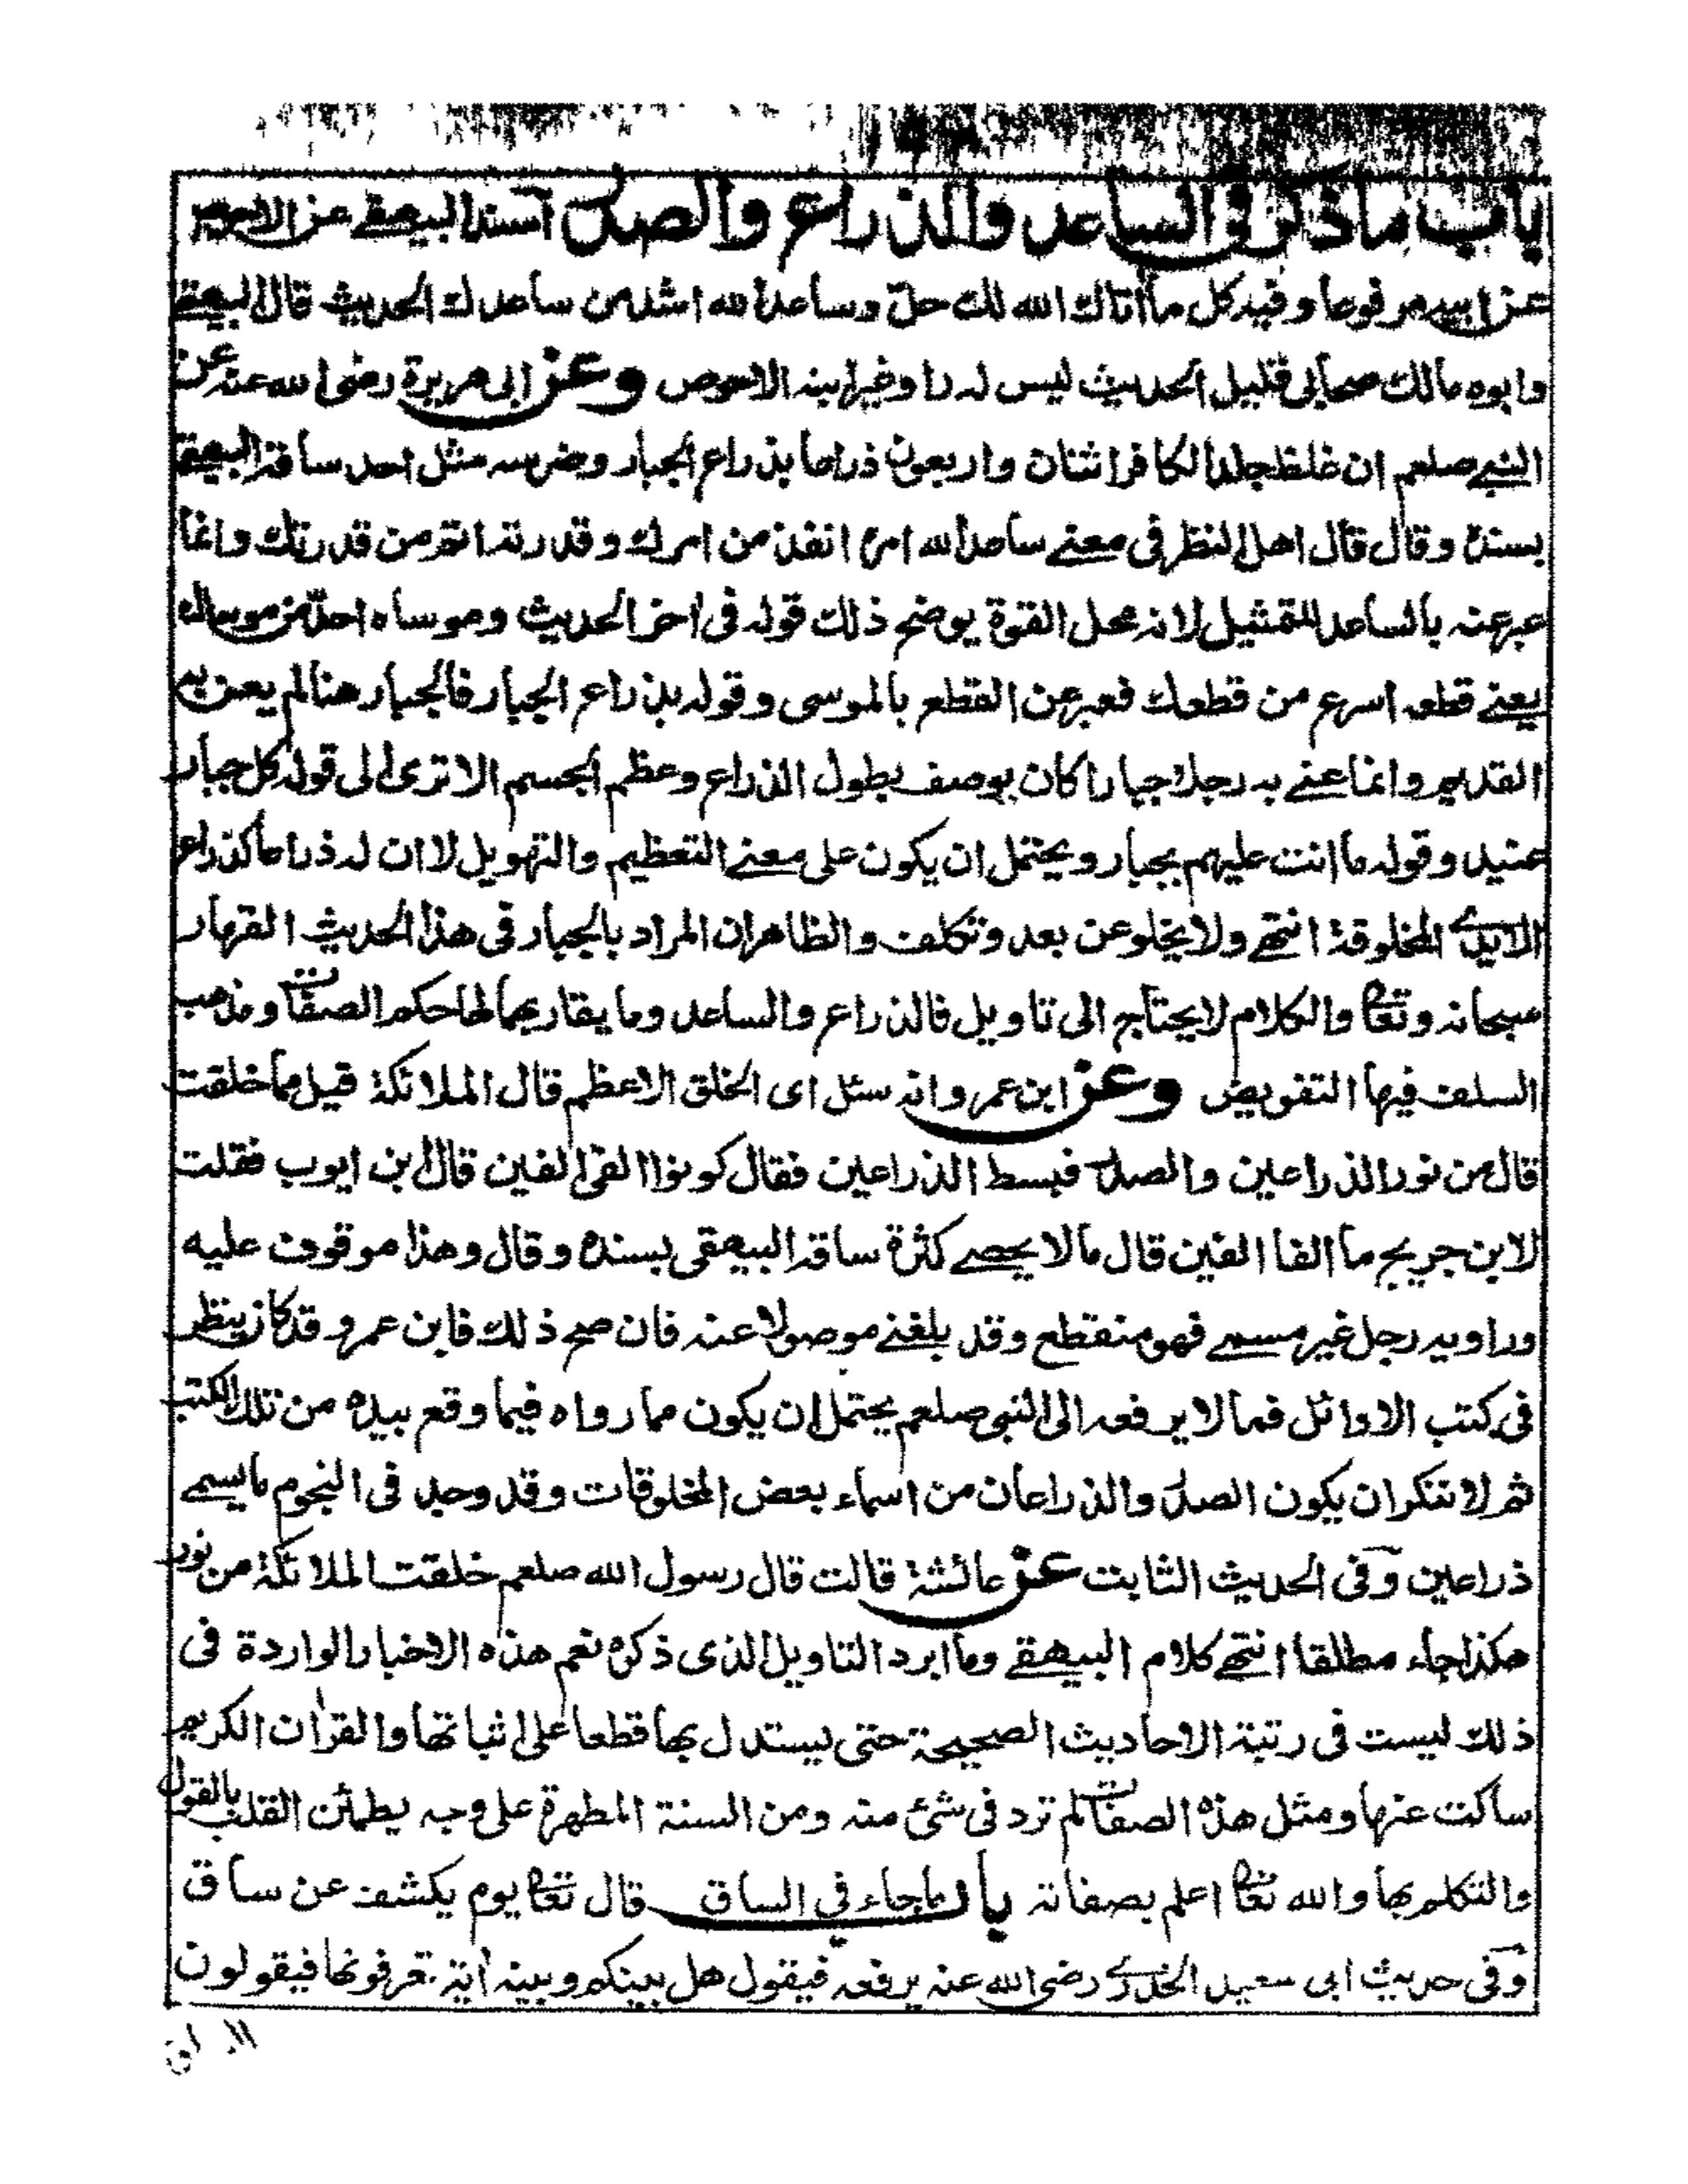 باب ما ذكر فى الساعد والذراع والصدر أسند البيهقے عن الاحوص
عن ابيه مرفوعا وفيه كل ما أتاك الله لك حلّ وساعد الله اشد من ساعدك الحديث قال البيهقے
وابوه مالك صحابى قليل الحديث ليس له راو غير ابنه الاحوص وعن ابى هريرة رضى الله عنه عن
النبى صلعم ان غلظ جلد الكافر اثنان واربعون ذراعا بذراع الجبار وضرسه مثل احد ساقه البيهقے
بسنده وقال قال اهل النظر فى معنے ساعد الله امره انفذ من امرك وقدرته اتم من قدرتك وانما
عبر عنه بالساعد للتمثيل لانه محل القوة يوضح ذلك قوله فى اخر الحديث وموساه احدّ من موساك
يعنے قطعه اسرع من قطعك فعبر عن القطع بالموسى وقوله بذراع الجبار فالجبار هنا لم يعن به
القديم وانما عنے به رجلا جبارا كان يوصف بطول الذراع وعظم الجسم الا ترى الى قوله كل جبار
عنيد وقوله ما انت عليهم بجبار ويحتمل ان يكون على معنے التعظيم والتهويل لا ان له ذراعا كذراع
الايدے المخلوقة انتهے ولا يخلو عن بعد وتكلف والظاهر ان المراد بالجبار فى هذا الحديث القهار
سبحانه وتعالى والكلام لا يحتاج الى تاويل فالذراع والساعد وما يقاربهما لها حكم الصفات ومذهب
السلف فيها التفويض وعن ابن عمرو انه سئل اى الخلق الاعظم قال الملائكة قيل مما خلقت
قال من نور الذراعين والصدر فبسط الذراعين فقال كونوا الفى الفين قال ابن ايوب فقلت
لابن جريج ما الفا الفين قال ما لا يحصے كثرة ساقه البيهقى بسنده وقال وهذا موقوف عليه
وراويه رجل غير مسمے فهو منقطع وقد بلغنے موصولا عنه فان صح ذلك فابن عمرو قد كان ينظر
فى كتب الاوائل فما لا يرفعه الى النبى صلعم يحتمل ان يكون مما رواه فيما وقع بيده من تلك الكتب
ثم لا ننكر ان يكون الصدر والذراعان من اسماء بعض المخلوقات وقد وجد فى النجوم ما يسمے
ذراعين وفى الحديث الثابت عن عائشة قالت قال رسول الله صلعم خلقت الملائكة من نور
هكذا جاء مطلقا انتهے كلام البيهقے وما ابرد التاويل الذى ذكره نعم هذه الاخبار الواردة فى
ذلك ليست فى رتبة الاحاديث الصحيحة حتى يستدل بها قطعا على اثباتها والقرأن الكريم
ساكت عنها ومثل هذه الصفات لم ترد فى شئ منه ومن السنة المطهرة على وجه يطمئن القلب بالقول
والتكلم بها والله تعالى اعلم بصفاته باب ما جاء فى الساق قال تعالى يوم يكشف عن ساق
وفى حديث ابى سعيد الخدرے رضى الله عنه يرفعه فيقول هل بينكم وبينه أية تعرفونها فيقولون